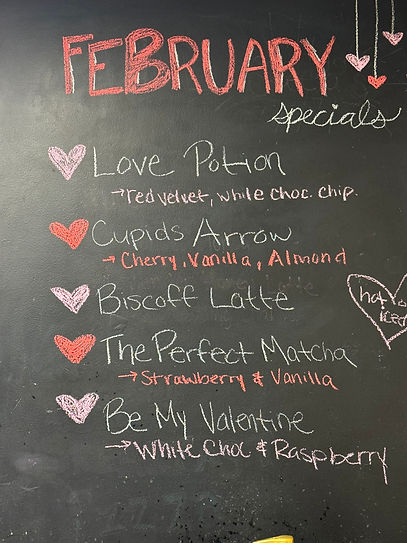 FEBRUARY
specials
Love Potion
→ red velvet, white choc. chip
Cupids Arrow
→ Cherry, Vanilla, Almond
Biscoff Latte
hot
iced
The Perfect Matcha
→ Strawberry & Vanilla
Be My Valentine
→ White Choc & Raspberry